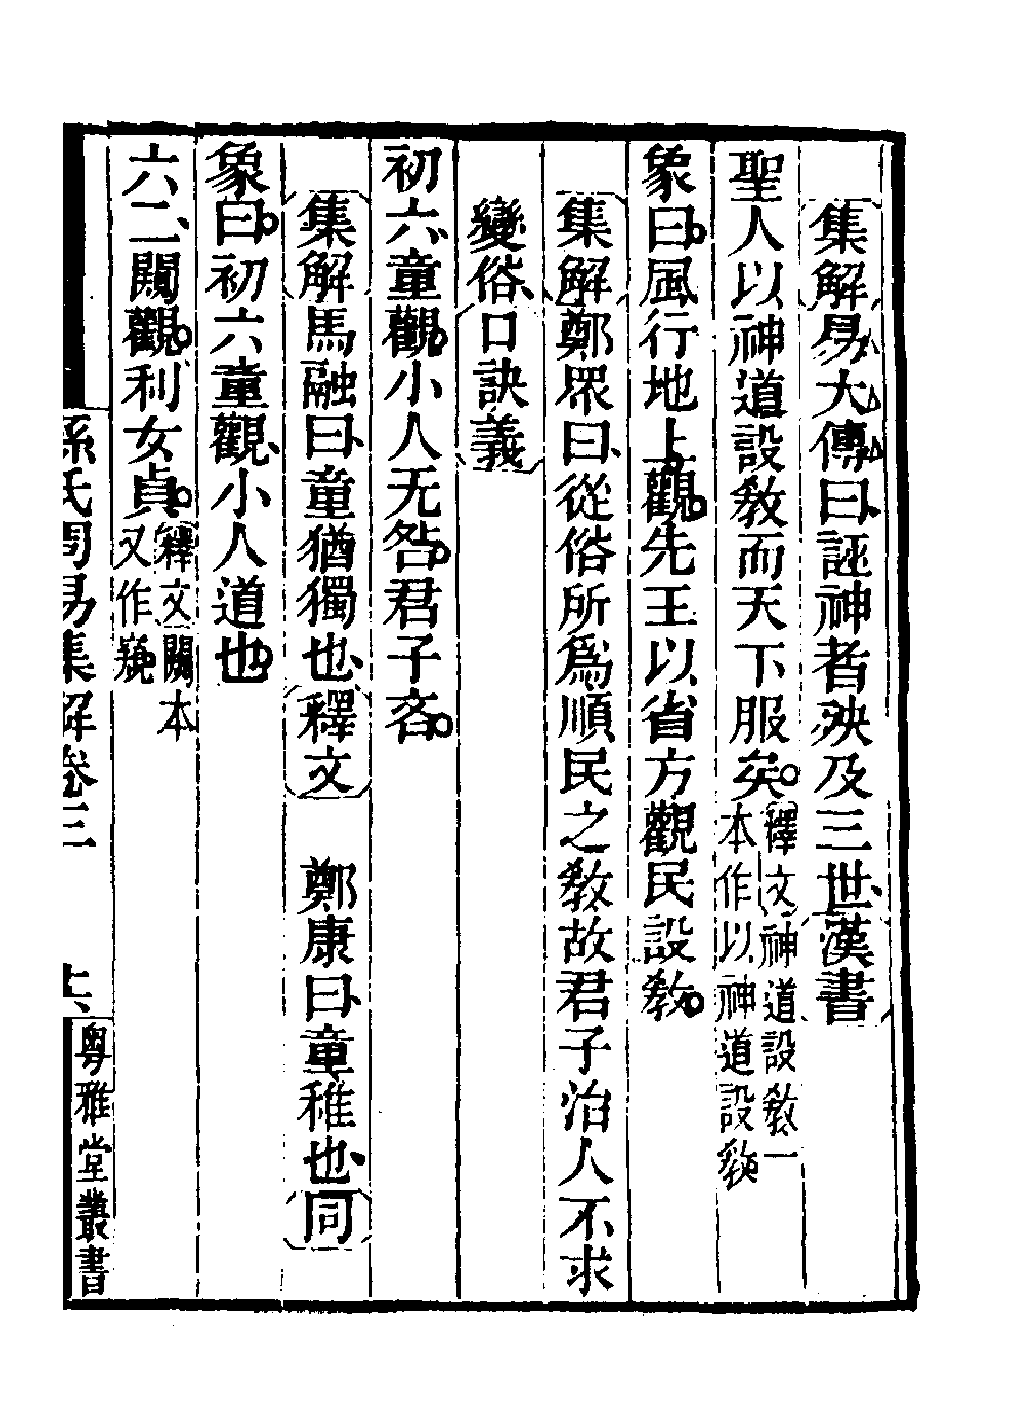 集解易大傳曰誣神者殃及三世漢書
聖人以神道設教而天下服矣釋文神道設教一
本作以神道設教
象曰風行地上觀先王以省方觀民設教
集解鄭眾曰從俗所爲順民之教故君子治人不求
變俗口訣義
初六童觀小人无咎君子吝
集解馬融曰童猶獨也釋文 鄭康曰童稚也同
象曰初六童觀小人道也
六二闚觀利女貞釋文闚本
又作窺
孫氏周易集解卷三
粵雅堂叢書